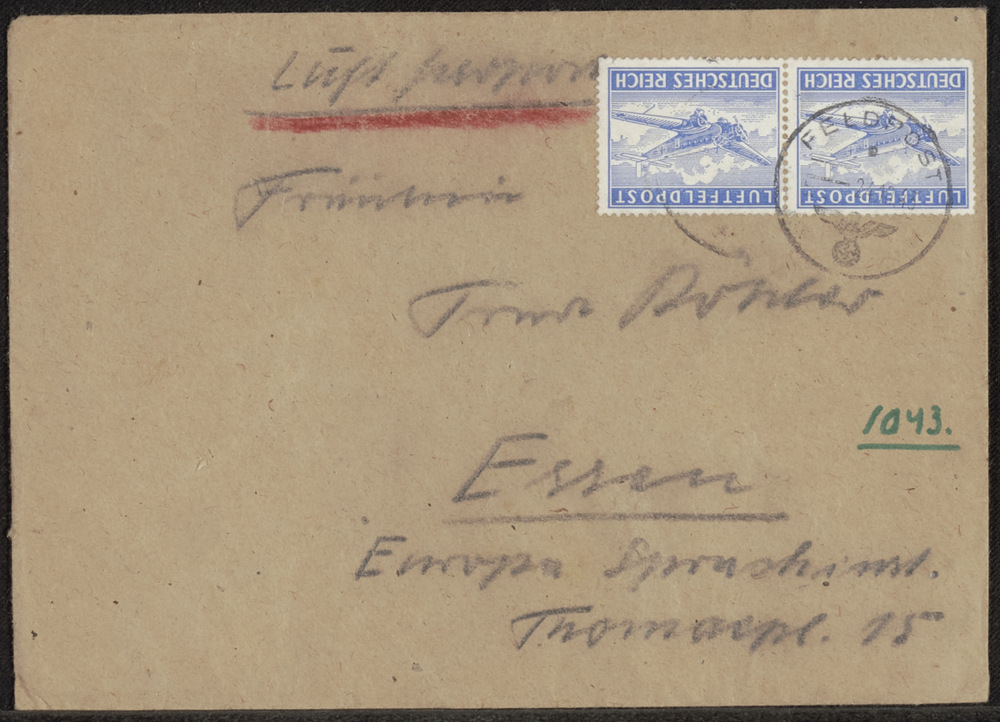 Luftfeldpost
DEUTSCHES REICH
LUFTFELDPOST
DEUTSCHES REICH
LUFTFELDPOST
FELDPOST
Fräulein
Köhler
1043.
Essen
Europa Sprachinst.
Thomaepl. 15